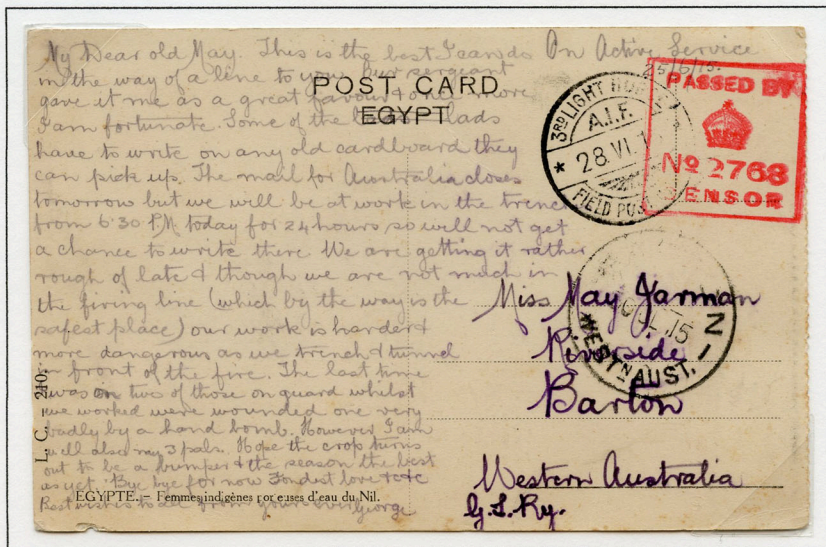 My Dear old May. This is the best I can do
in the way of a line to you. Our sergeant
gave it me as a great favour & once more
I am fortunate. Some of the lads
have to write on any old cardboard they
can pick up. The mail for Australia closes
tomorrow but we will be at work in the trench
from 6.30 P.M. today for 24 hours so will not get
a chance to write there We are getting it rather
rough of late & though we are not much in
the firing line (which by the way is the
safest place) our work is harder &
more dangerous as we trench & tunnel
in front of the fire. The last time
I was on two of those on guard whilst
we worked were wounded one very
badly by a hand bomb. However I am
well also my 3 pals. Hope the crop turns
out to be a bumper & the season the best
as yet. Bye bye for now Fondest love &c &c
Best wishes to all from yours ever George
On Active Service
25/6/15.
POST CARD
EGYPT
3RD LIGHT HORSE
A.I.F.
28 VI 1
FIELD POST
PASSED BY
No 2768
CENSOR
15
WESTN AUST.
Miss May Jarman
Riverside
Barton
Western Australia
G.S.Ry.
L. C. — 210.
EGYPTE. — Femmes indigènes porteuses d'eau du Nil.